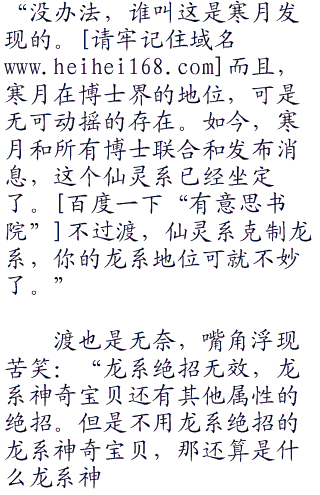 “没办法，谁叫这是寒月发
现的。[请牢记住域名
www.heihei168.com]而且，
寒月在博士界的地位，可是
无可动摇的存在。如今，寒
月和所有博士联合和发布消
息，这个仙灵系已经坐定
了。[百度一下“有意思书
院”]不过渡，仙灵系克制龙
系，你的龙系地位可就不妙
了。”
渡也是无奈，嘴角浮现
苦笑：“龙系绝招无效，龙
系神奇宝贝还有其他属性的
绝招。但是不用龙系绝招的
龙系神奇宝贝，那还算是什
么龙系神